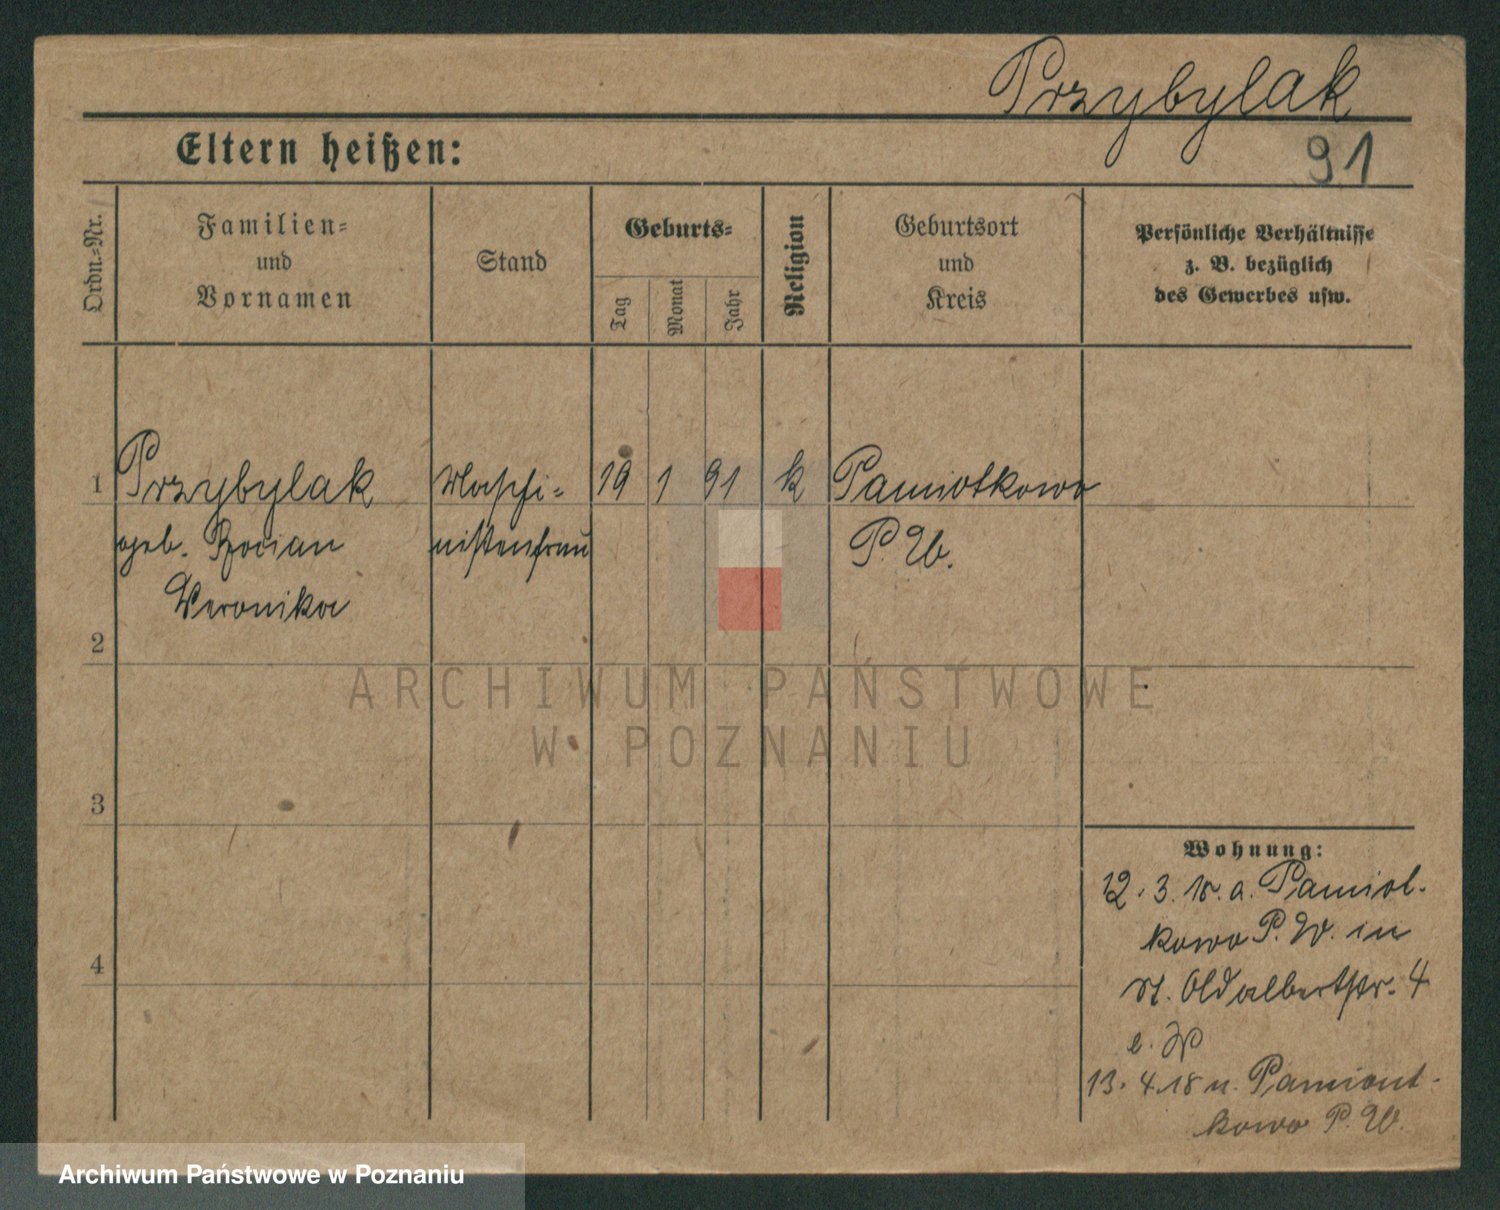 Przybylak
Eltern heißen:
91
Ordn.-Nr.
Familien-
und
Vornamen
Stand
Geburts-
Tag
Monat
Jahr
Religion
Geburtsort
und
Kreis
Persönliche Verhältnisse
z. B. bezüglich
des Gewerbes usw.
1 Przybylak Maschi- 19 1 91 k Pamiotkowo
geb. Bocian nistenfrau P. W.
Veronika
2
3
4
Wohnung:
12. 3. 18. a. Pamiot-
kowo P. W. in
St. Adalbertstr. 4
b.
13. 4. 18 n. Pamiont-
kowo P. W.
ARCHIWUM PAŃSTWOWE
W POZNANIU
Archiwum Państwowe w Poznaniu